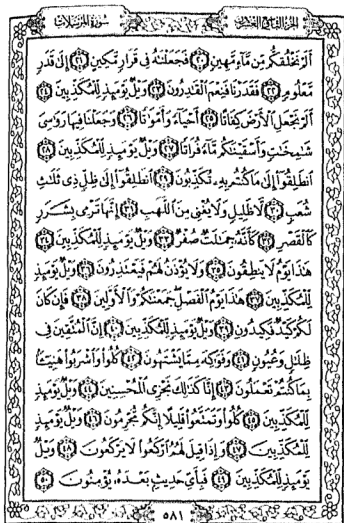 سورة المرسلات
الجزء التاسع والعشرون
ألم نخلقكم من ماء مهين ٢٠ فجعلناه في قرار مكين ٢١ إلى قدر
معلوم ٢٢ فقدرنا فنعم القادرون ٢٣ ويل يومئذ للمكذبين ٢٤
ألم نجعل الأرض كفاتا ٢٥ أحياء وأمواتا ٢٦ وجعلنا فيها رواسي
شامخات وأسقيناكم ماء فراتا ٢٧ ويل يومئذ للمكذبين ٢٨
انطلقوا إلى ما كنتم به تكذبون ٢٩ انطلقوا إلى ظل ذي ثلاث
شعب ٣٠ لا ظليل ولا يغني من اللهب ٣١ إنها ترمي بشرر
كالقصر ٣٢ كأنه جمالت صفر ٣٣ ويل يومئذ للمكذبين ٣٤
هذا يوم لا ينطقون ٣٥ ولا يؤذن لهم فيعتذرون ٣٦ ويل يومئذ
للمكذبين ٣٧ هذا يوم الفصل جمعناكم والأولين ٣٨ فإن كان
لكم كيد فكيدون ٣٩ ويل يومئذ للمكذبين ٤٠ إن المتقين في
ظلال وعيون ٤١ وفواكه مما يشتهون ٤٢ كلوا واشربوا هنيئا
بما كنتم تعملون ٤٣ إنا كذلك نجزي المحسنين ٤٤ ويل يومئذ
للمكذبين ٤٥ كلوا وتمتعوا قليلا إنكم مجرمون ٤٦ ويل يومئذ
للمكذبين ٤٧ وإذا قيل لهم اركعوا لا يركعون ٤٨ ويل
يومئذ للمكذبين ٤٩ فبأي حديث بعده يؤمنون ٥٠
٥٨١